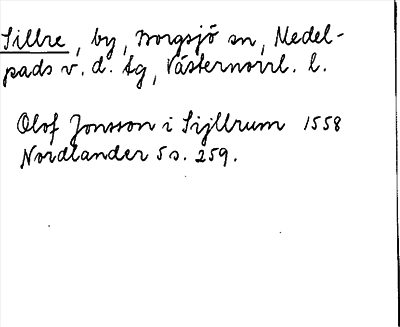 Sillre, by, Borgsjö sn, Medel-
pads v. d. tg, Västernorrl. l.
Olof Jonsson i Sijllrum 1558
Nordlander 5 s. 259.